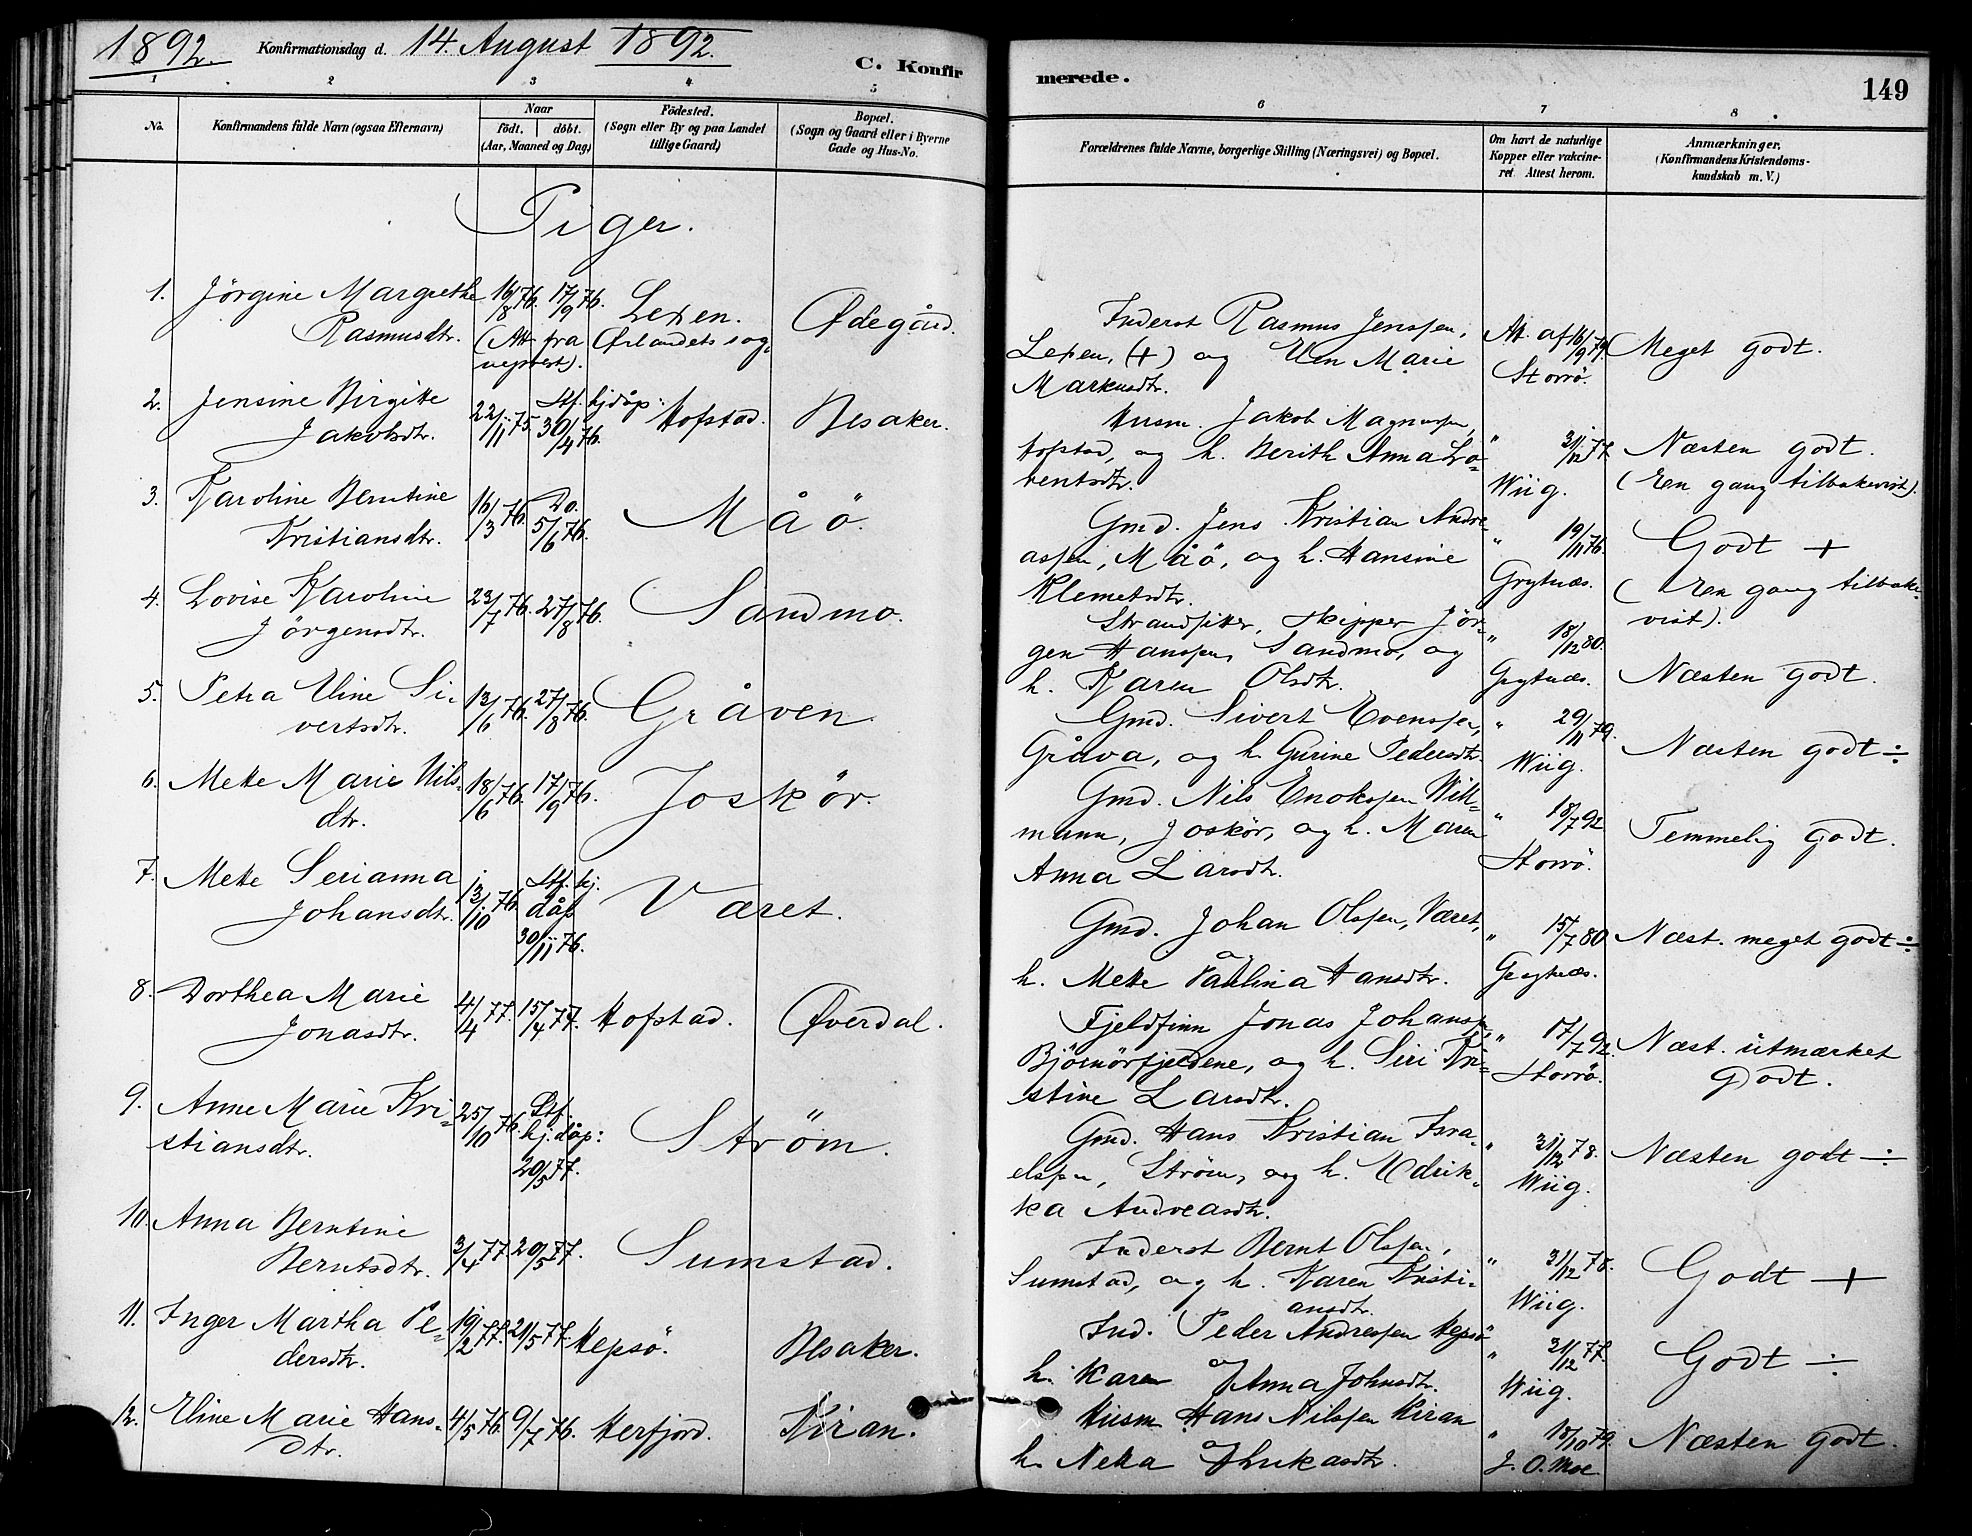 1892. Konfirmationsdag d. 14. August 1892. C. Konfirmerede. 149
1 2 3 4 5 6 7 8
No. Konfirmandens fulde Navn (ogsaa Efternavn)
Naar
födt. döbt.
(Aar, Maaned og Dag)
Födested.
(Sogn eller By og paa Landet
tillige Gaard)
Bopæl.
(Sogn og Gaard eller i Byerne
Gade og Hus-No.
Forældrenes fulde Navne, borgerlige Stilling (Næringsvei) og Bopæl.
Om havt de naturlige
Kopper eller vakcine-
ret. Attest herom.
Anmærkninger.
(Konfirmandens Kristendoms-
kundskab m. V.)
Piger.
1. Jörgine Margrethe 16/8 76. 17/9 76. Lexen. Ødegård.
Rasmusdtr. (Att. fra Ørlandets sog-
neprest).
Inderst Rasmus Jenssen,
Lexen, (+) og Elen Marie
Markusdtr.
Att. af 16/9 79.
Storrö.
Meget godt.
2. Jensine Birgitte
Jakobsdtr. 22/11 75. Stf. hjdåp: 30/4 76. Hofstad. Besaker.
Husm. Jakob Magnussen,
Hofstad, og h. Berith Anna Lo-
rentsdtr.
" 31/12 77.
Wiig.
Næsten godt.
(Een gang tilbakevist).
3. Karoline Berntine
Kristiansdtr. 16/3 76. Do. 5/6 76. Måö.
Gmd. Jens Kristian Andre-
assen, Måö, og h. Hansine
Klemetsdtr.
" 19/11 76.
Grytnæs.
Godt +
(Een gang tilbake-
vist).
4. Lovise Karoline
Jörgensdtr. 23/7 76. 27/8 76. Sandmo.
Strandsitter, Skipper Jör-
gen Hanssen, Sandmo, og
h. Karen Olsdtr.
" 18/12 80.
Grytnæs.
Næsten godt.
5. Petra Eline Si-
vertsdtr. 13/6 76. 27/8 76. Gråven
Gmd. Sivert Evenssen,
Gråva, og h. Gurine Pedersdtr.
" 29/11 79.
Wiig.
Næsten godt ÷
6. Mette Marie Nils-
dtr. 18/6 76. 17/9 76. Joskör.
Gmd. Nils Enokssen Will-
mann, Joskör, og h. Maren
Anna Larsdt.
" 18/7 92
Storrö.
Temmelig godt.
7. Mette Serianna
Johansdtr. 13/10 76. Stf. hj.
dåp
30/11 76. Været.
Gmd. Johan Olssen, Været,
og
h. Mette Paulina Hansdtr.
" 15/7 80
Grytnæs.
Næst. meget godt ÷
8. Dorthea Marie
Jonasdtr. 4/4 77. 15/4 77. Hofstad. Øverdal.
Fjeldfinn Jonas Johanss.,
Björnörfjeldene, og h. Siri Kri-
stine Larsdtr.
" 17/7 92.
Storrö.
Næst. utmærket
godt.
9. Anne Marie Kri-
stiansdtr. 25/10 76. Stf.
hj.dåp:
20/5 77. Ström.
Gmd. Hans Kristian Isra-
elssen, Ström, og h. Edrik-
ka Andreasdtr.
" 31/12 78.
Wiig.
Næsten godt ÷
10. Anna Berntine
Berntsdtr. 3/4 77. 20/5 77. Sumstad.
Inderst Bernt Olssen,
Sumstad, og h. Karen Kristi-
ansdtr.
" 31/12 78.
Wiig.
Godt +
11. Inger Martha Pe-
dersdtr. 19/2 77. 21/5 77. Hepsö. Besaker.
Ind. Peder Andressen Hepsö
og
h. Karen Anna Johnsdtr.
" 31/12 77.
Wiig.
Godt ÷
12. Eline Marie Hans-
dtr. 4/5 76. 9/7 76. Herfjord. Kiran.
Husm Hans Nilssen Kiran
og
h. Netta Lukasdtr.
" 18/10 79.
J. O. Moe
Næsten godt.